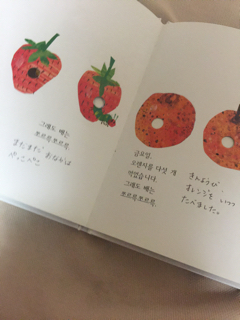 그래도 배는
쪼르륵쪼르륵.
まだまだ おなかは
ぺっこぺこ
금요일,
오렌지를 다섯 개
먹었습니다.
그래도 배는
쪼르륵쪼르륵.
きんようび
オレンジを いつつ
たべました。